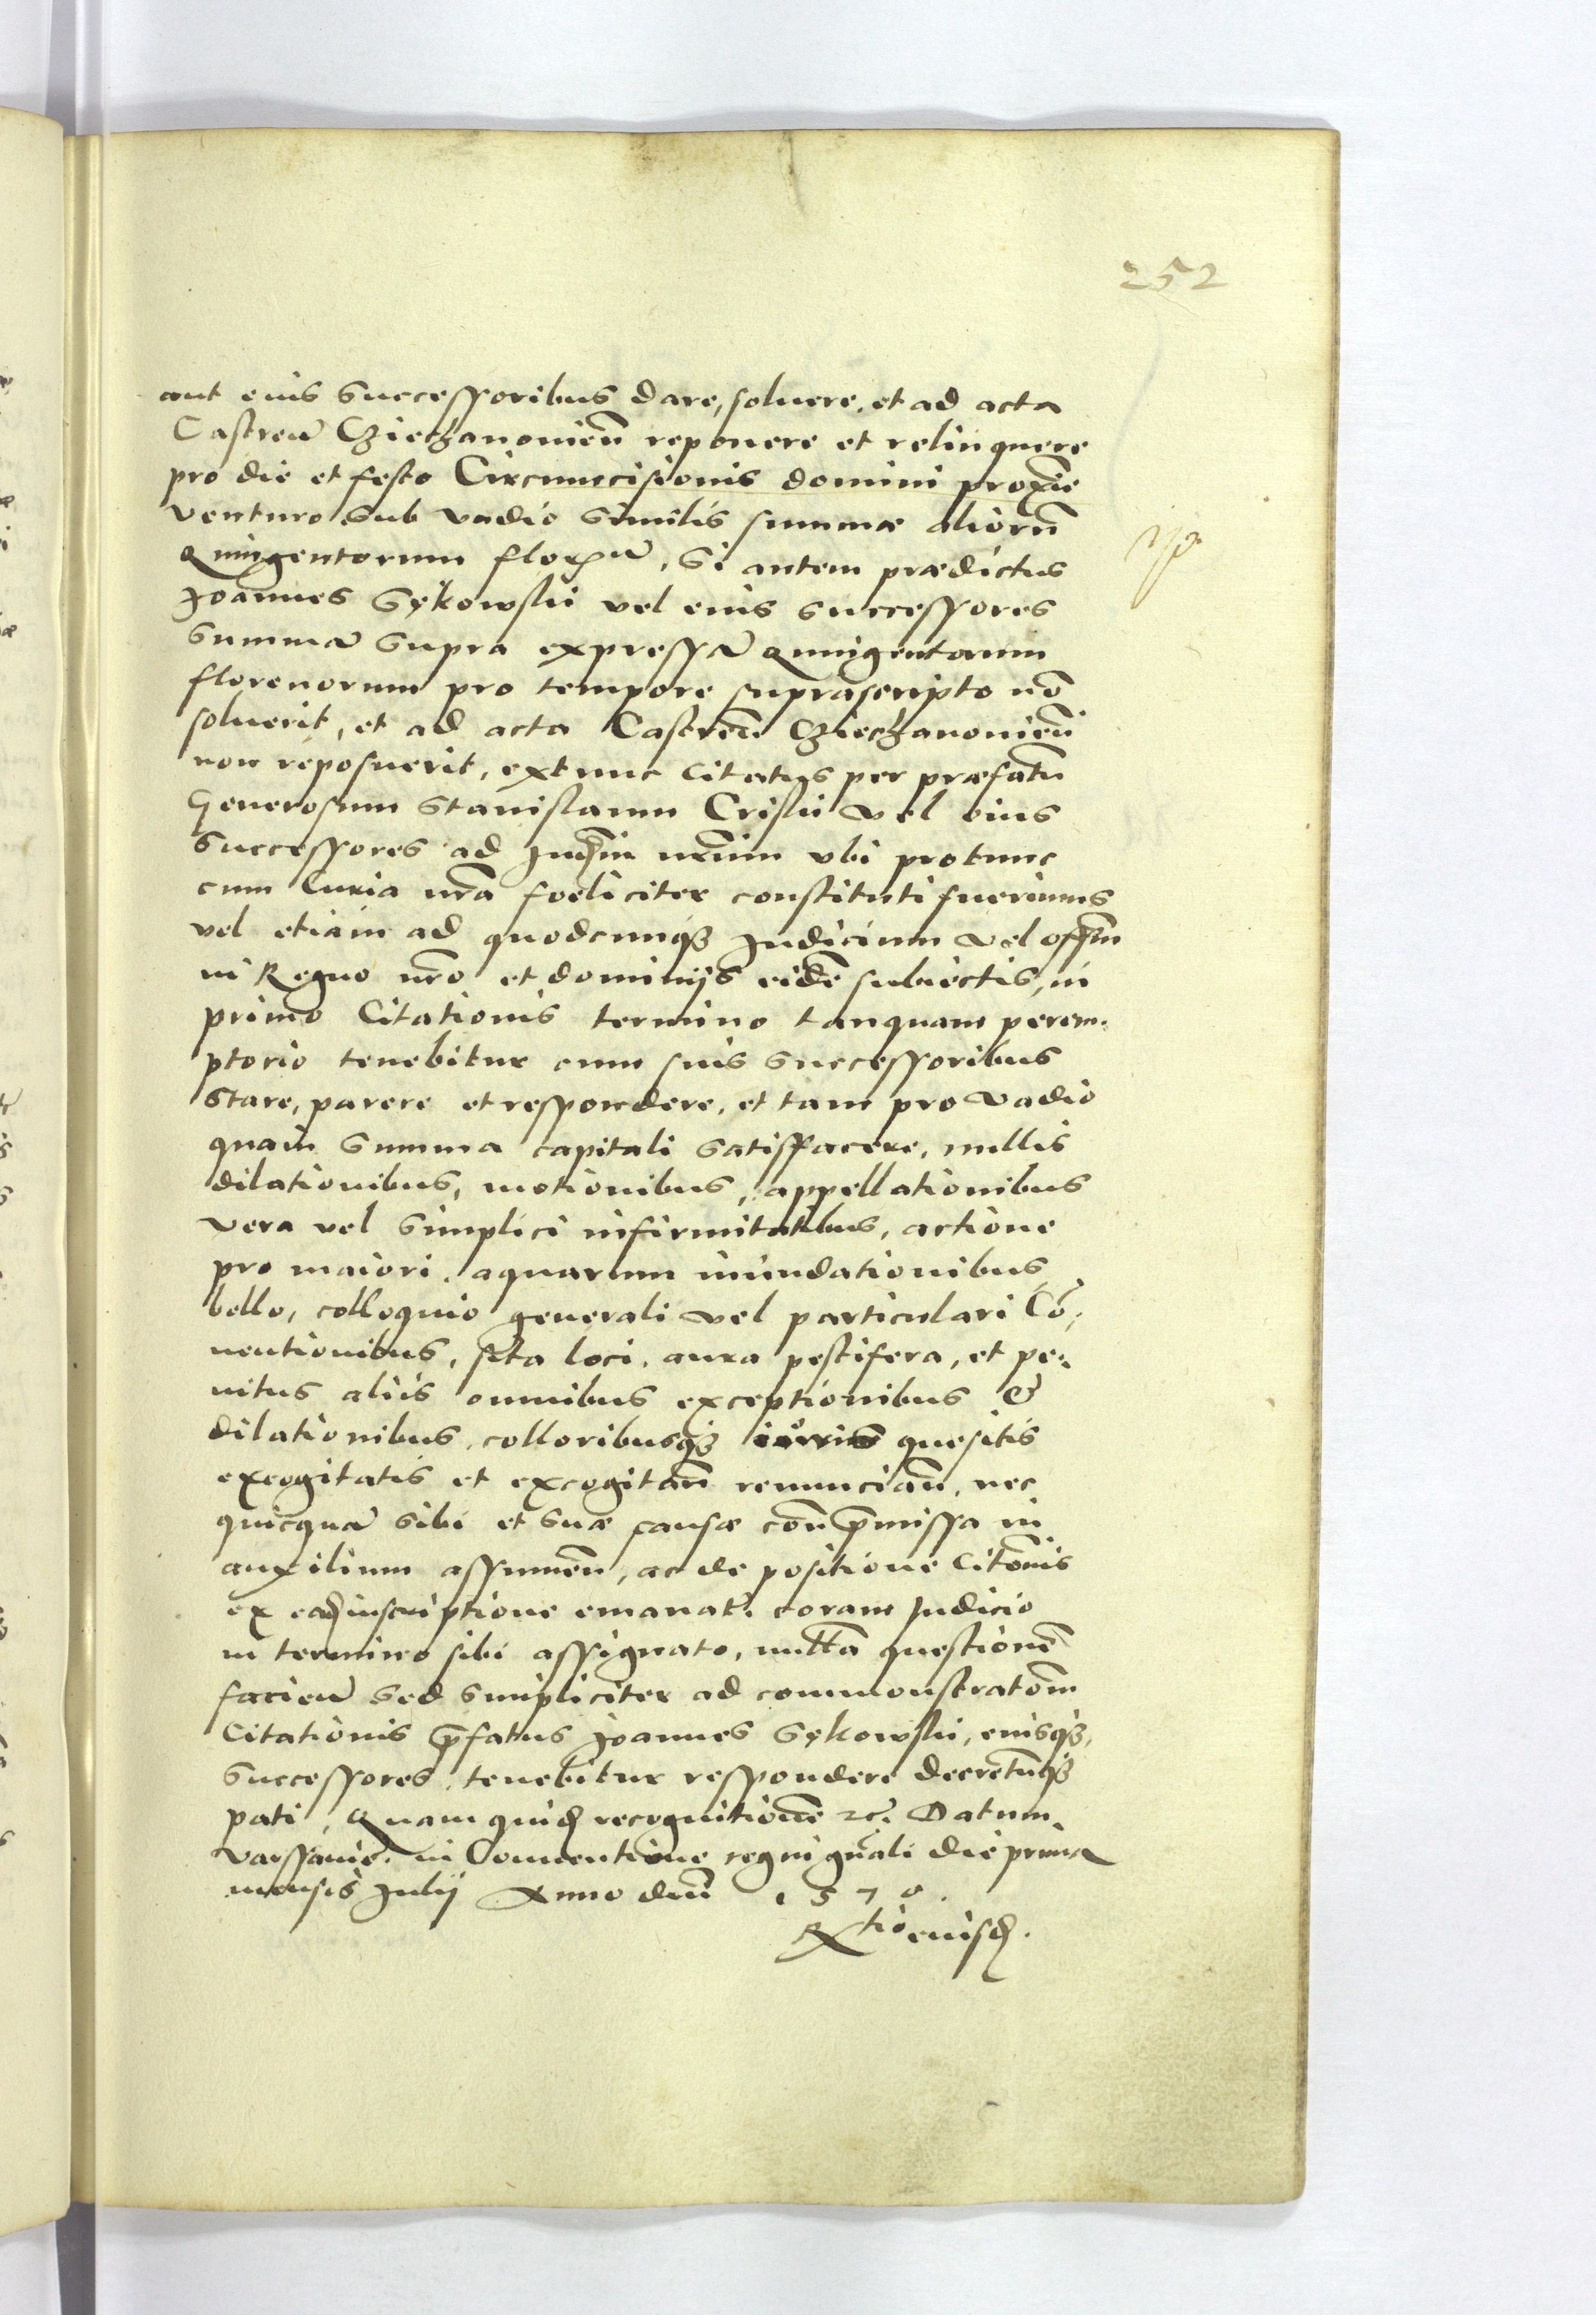 252
aut eius Successoribus dare, soluere, et ad acta
Castreñ Cziechanonieñ reponere et relinquere
pro die et festo Circumcisionis domini proxie
venturo sub vadio similis summæ aliorũ
Quingentorum florenũ, Si autem prædictus
Joannes Sękowski vel eius successores
Summã supra expressã Quingentorum
florenorum pro tempore suprascripto nõ
soluerit, et ad acta Castreñ Cziechanonieñ
non reposuerit, extunc Citatus per præfatũ
Generosum Stanislaum Criski vel eius
Successores ad Judiũm nrũm vbi protunc
cum Curia nrã foeliciter constituti fuerimus
vel etiam ad quodcunqȝ Judicium vel offiũm
in Regno nrõ et dominijs eidẽ subiectis, in
primo Citationis termino tanquam perem-
ptorio tenebitur cum suis Successoribus
Stare, parere et respondere, et tam pro vadio
quam Summa capitali satisfacere, nullis
dilationibus, motionibus, appellationibus
vera vel simplici infirmitatibus, actione
pro maiori, aquarum inundationibus
bello, colloquio generali vel particulari Cõ-
uentionibus, sita loci, aura pestifera, et pe-
nitus aliis omnibus exceptionibus &
dilationibus, colloribusqȝ quesitis
excogitatis et excogitañ renunciañ, nec
quicquã sibi et suæ causæ coñ p̄missa in
auxilium assumeñ, ac de positione Citõnis
ex ead inscriptione emanat. coram Judicio
in termino sibi assignato, nullã questionẽ
facieñ sed simpliciter ad commonstratõm
Citationis p̄fatus Joannes Sękowski, eiusqȝ
Successores, tenebitur respondere decretũqȝ
pati, Quam quid recognitionẽ ꝛc̃. Datum
Varssauie in Conuentione regni gñali die prima
mensis Julij Anno dñi 1570.
Rtio eiusd.